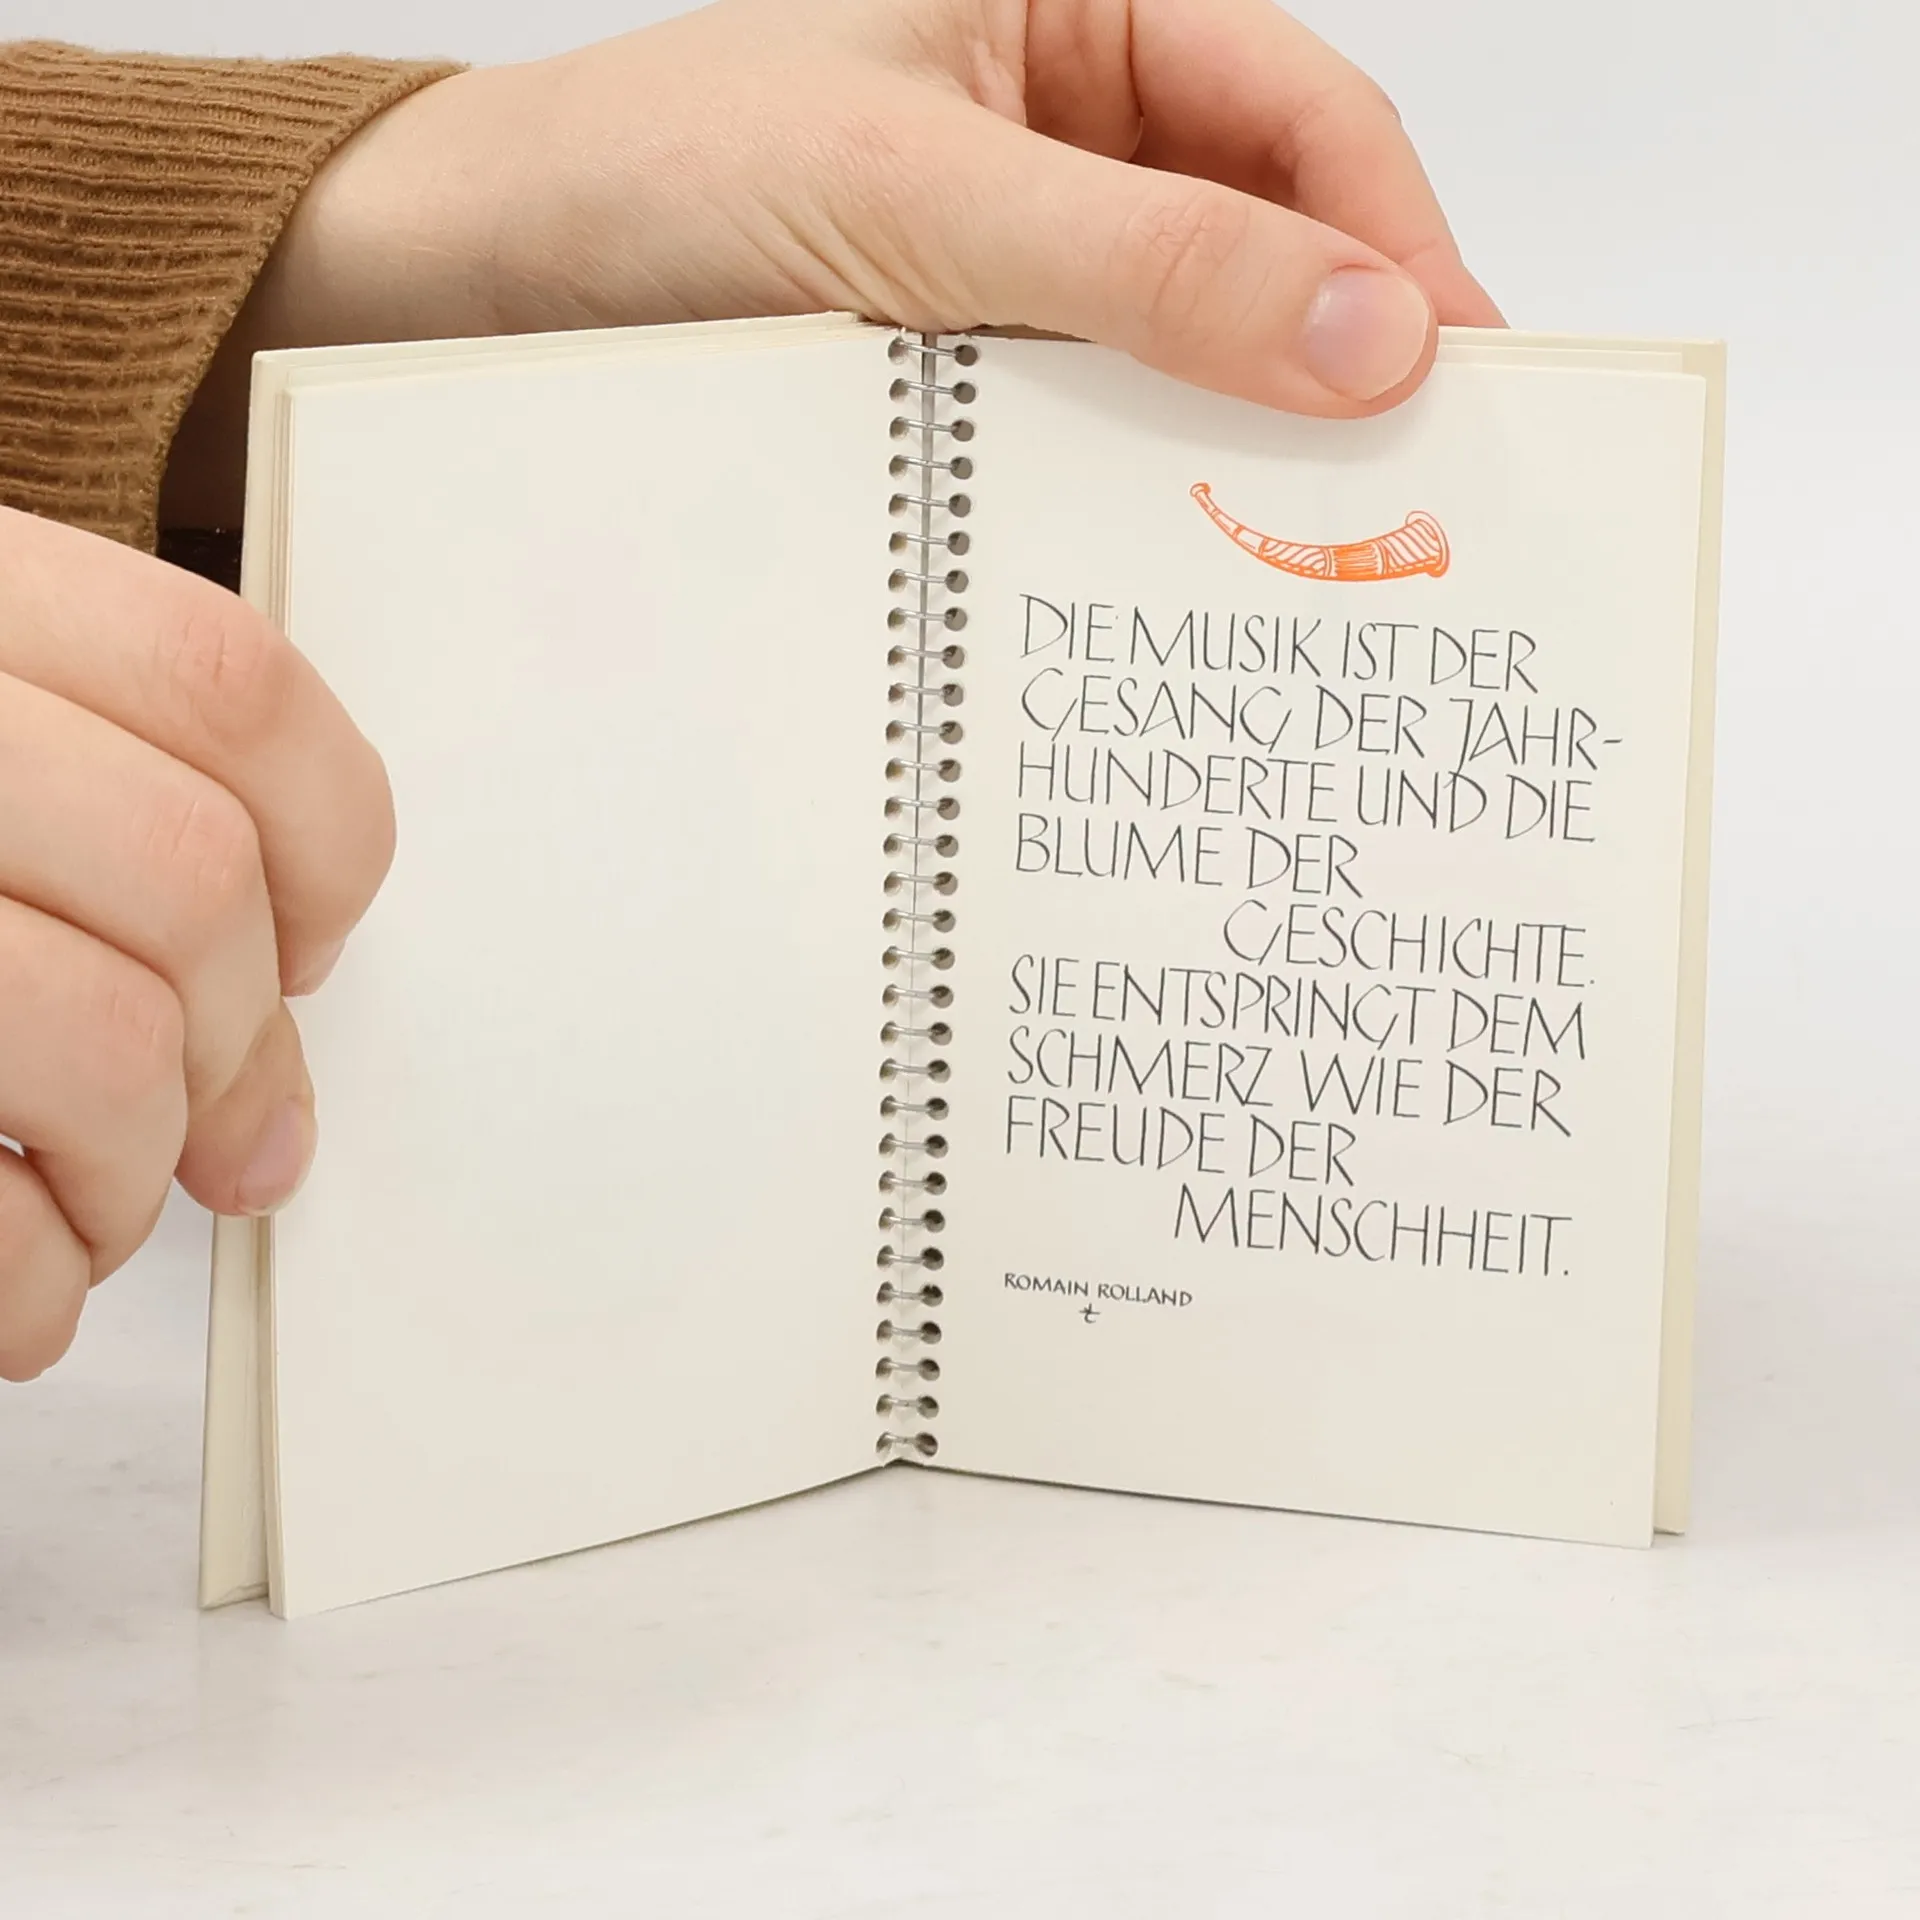 DIE MUSIK IST DER
GESANG DER JAHR-
HUNDERTE UND DIE
BLUME DER
GESCHICHTE.
SIE ENTSPRINGT DEM
SCHMERZ WIE DER
FREUDE DER
MENSCHHEIT.
ROMAIN ROLLAND